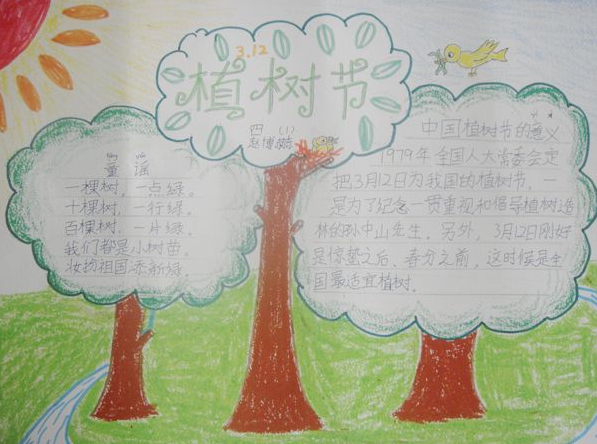 3.12
植树节
四(1)
赵博
童谣
一棵树,一点绿。
十棵树,一行绿。
百棵树,一片绿。
我们都是小树苗。
妆扮祖国添新绿。
中国植树节的意义
1979年全国人大常委会定
把3月12日为我国的植树节,一
是为了纪念一贯重视和倡导植树造
林的孙中山先生,另外,3月12日刚好
是惊蛰之后、春分之前,这时候是全
国最适宜植树。